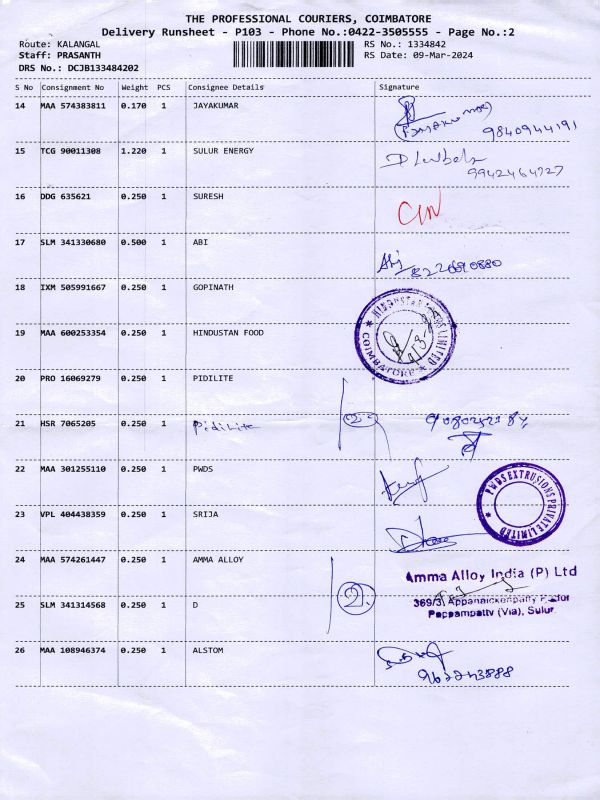 THE PROFESSIONAL COURIERS, COIMBATORE
Delivery Runsheet - P103 - Phone No.:0422-3505555 - Page No.:2
Route: KALANGAL RS No.: 1334842
Staff: PRASANTH RS Date: 09-Mar-2024
DRS No.: DCJB133484202
S No Consignment No Weight PCS Consignee Details Signature
14 MAA 574383811 0.170 1 JAYAKUMAR
9840944191
15 TCG 90011308 1.220 1 SULUR ENERGY
9942464727
16 DDG 635621 0.250 1 SURESH
17 SLM 341330680 0.500 1 ABI
Abi 8220690880
18 IXM 505991667 0.250 1 GOPINATH
19 MAA 600253354 0.250 1 HINDUSTAN FOOD
COIMBATORE
20 PRO 16069279 0.250 1 PIDILITE
21 HSR 7065205 0.250 1 Pidilite 2
22 MAA 301255110 0.250 1 PWDS
PWDS EXTRUSIONS PRIVATE LIMITED
23 VPL 404438359 0.250 1 SRIJA
24 MAA 574261447 0.250 1 AMMA ALLOY
Amma Alloy India (P) Ltd
2.
369/3, Appanaickenpatty
Pappampatty (Via), Sulur.
25 SLM 341314568 0.250 1 D
26 MAA 108946374 0.250 1 ALSTOM